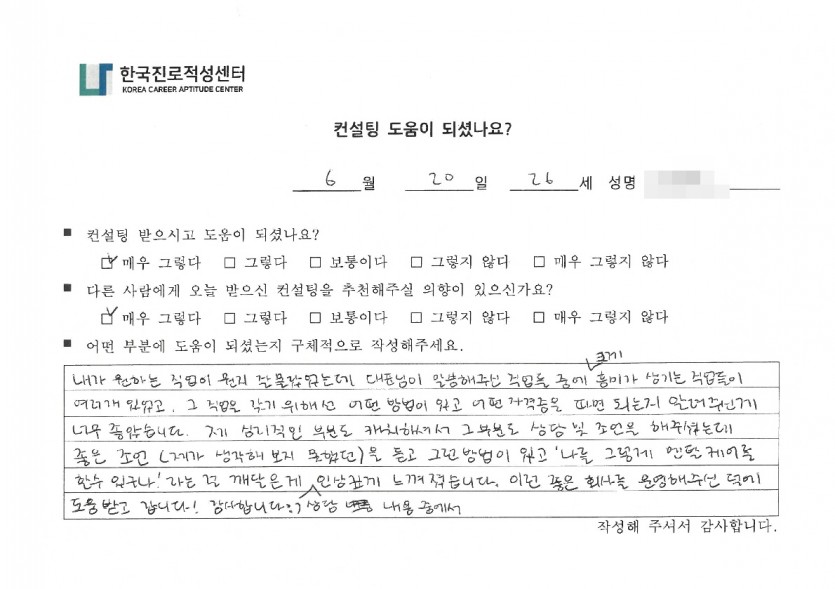 한국진로적성센터
KOREA CAREER APTITUDE CENTER
컨설팅 도움이 되셨나요?
6 월 20 일 26 세 성명
■ 컨설팅 받으시고 도움이 되셨나요?
☑ 매우 그렇다 □ 그렇다 □ 보통이다 □ 그렇지 않다 □ 매우 그렇지 않다
■ 다른 사람에게 오늘 받으신 컨설팅을 추천해주실 의향이 있으신가요?
☑ 매우 그렇다 □ 그렇다 □ 보통이다 □ 그렇지 않다 □ 매우 그렇지 않다
■ 어떤 부분에 도움이 되셨는지 구체적으로 작성해주세요.
크게
내가 원하는 직업이 뭔지 잘 몰랐었는데 대표님이 말씀해주신 직업들 중에 흥미가 생기는 직업들이
여러개 있었고, 그 직업을 갖기 위해선 어떤 방법이 있고 어떤 자격증을 따면 되는지 알려주신게
너무 좋았습니다. 제 심리적인 부분도 캐치하셔서 그부분도 상담 및 조언을 해주셨는데
좋은 조언 (제가 생각해 보지 못했던)을 듣고 그런 방법이 있고 '나를 그렇게 멘탈케어를
할수 있구나!' 라는 걸 깨달은게 인상깊게 느껴졌습니다. 이런 좋은 회사를 운영해주신 덕에
도움받고 갑니다! 감사합니다:) 상담 내용 중에서
작성해 주셔서 감사합니다.